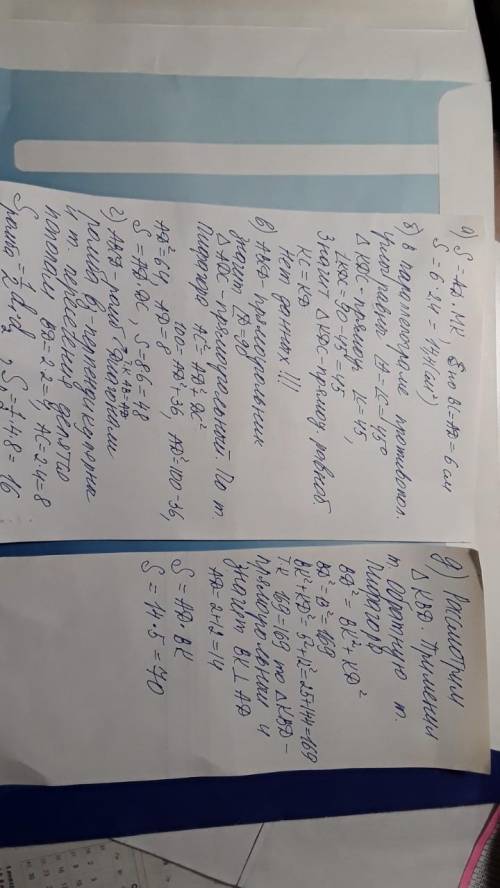 а) S = AD · MK, BC = AD = 6 см
S = 6 · 24 = 144 (см²)
б) В параллелограме противопол.
углы равны. ∠A = ∠C = 45°
△KDC прямоуг, ∠C = 45,
∠KDC = 90 - 45 = 45
Значит △KDC - прямоуг. равноб
KC = KD
Нет данных !!!
в) ABCD - прямоугольник
значит ∠D = 90
△ADC - прямоугольный. По т.
Пифагора AC² = AD² + DC²
100 = AD² + 36, AD² = 100 - 36,
AD² = 64 AD = 8
S = AD · DC, S = 8 · 6 = 48
т.к. AB = AD
г) ABCD - ромб. Диагонали
ромба перпендикулярны
и т. пересечения делятся
пополам BD = 2 · 2 = 4, AC = 2 · 4 = 8
Sромба = ½ d₁ · d₂, S = ½ · 4 · 8 = 16
д) Рассмотрим
△KBD. Применим
т. обратную т.
Пифагора
BD² = BK² + KD²
BD² = 13² = 169
BK² + KD² = 5² + 12² = 25 + 144 = 169
Т.к 169 = 169 то △KBD -
прямоугольный и
значит BK ⊥ AD
AD = 2 + 12 = 14
S = AD · BK
S = 14 · 5 = 70